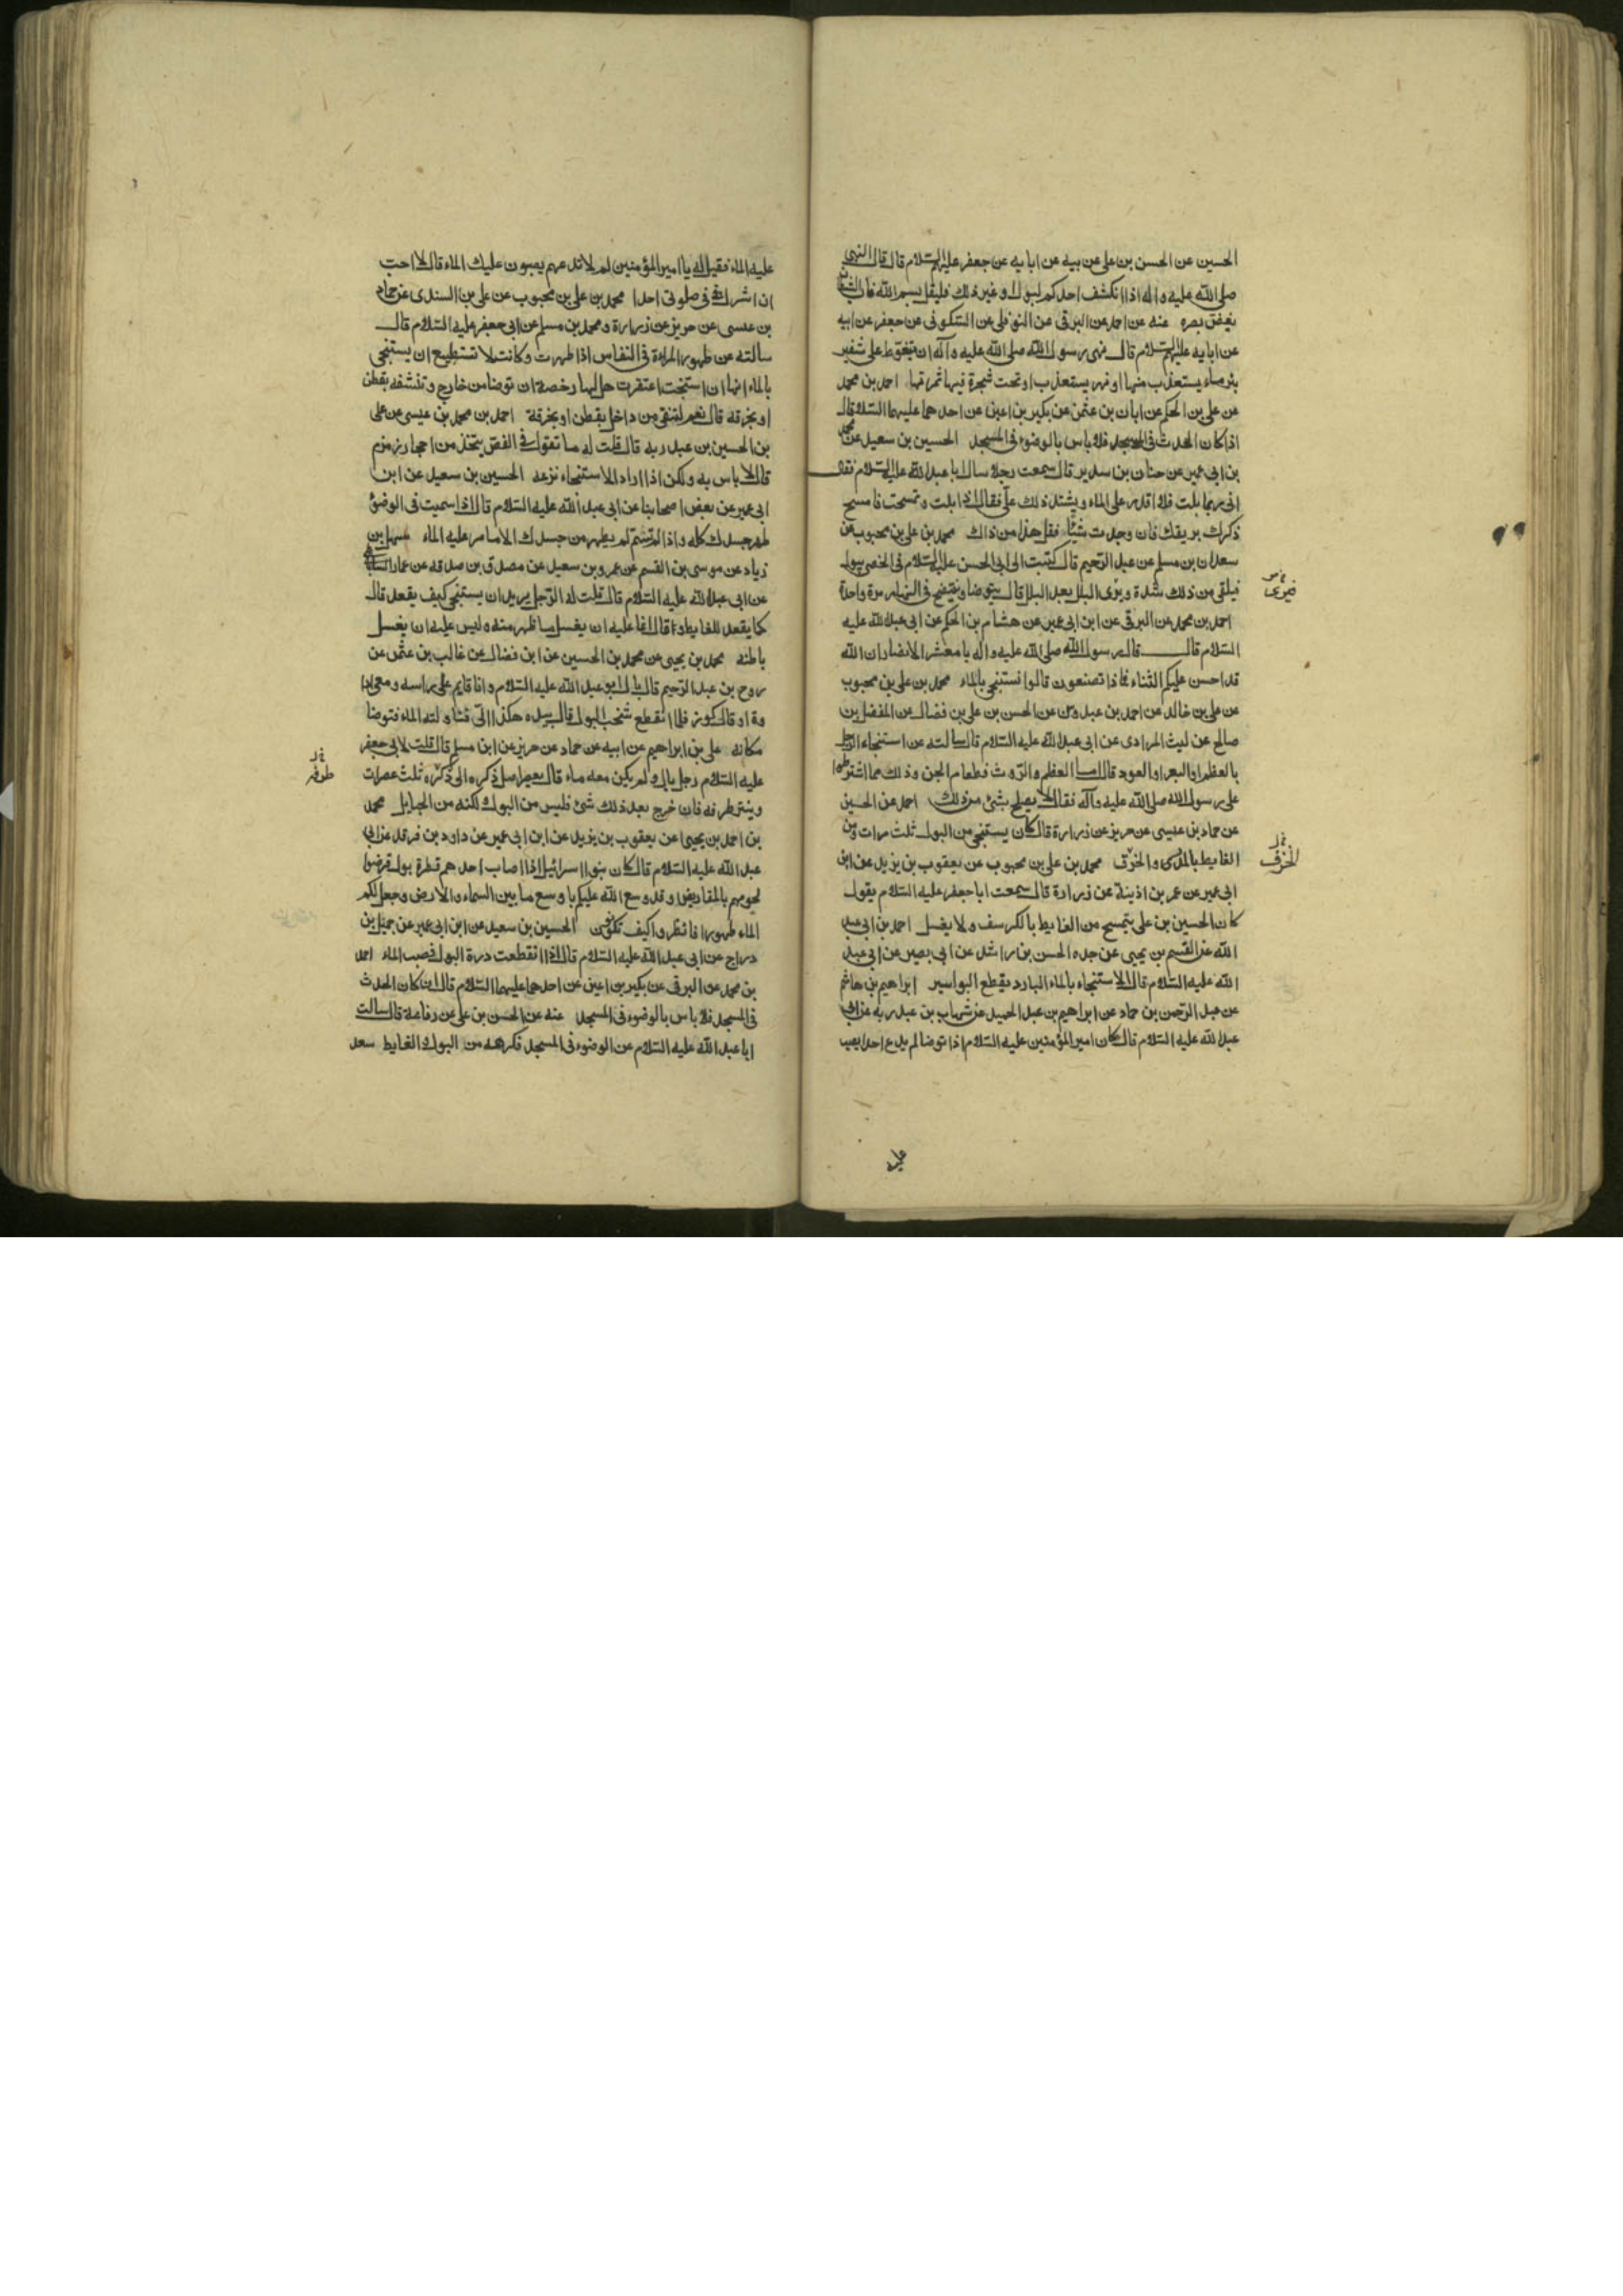 الحسين عن الحسن بن على عن بيه عن ابايه عن جعفر عليهم السلام قال قال النبى
صلى الله عليه واله اذا انكشف احدكم لبول او غير ذلك فليقل بسم الله فان الشيطان
يغض بصره عنه عن احمد عن البرقى عن النوفلى عن السكونى عن جعفر عن ابيه
عن ابايه عليهم السلام قال نهى رسول الله صلى الله عليه وآله ان يتغوط على شفير
بئر ماء يستعذب منها او نهر يستعذب او تحت شجرة فيها ثمرتها احمد بن محمد
عن على بن الحكم عن ابان بن عثمن عن بكير بن اعين عن احدهما عليهما السلام قال
اذا كان الحدث فى المسجد فلا باس بالوضوء فى المسجد الحسين بن سعيد عن محمد
بن ابى عمير عن حنان بن سدير قال سمعت رجلا سال ابا عبد الله عليه السلام فقال
انى ربما بلت فلا اقدر على الماء ويشتد ذلك علىّ فقال اذا بلت وتمسحت فامسح
ذكرك بريقك فان وجدت شيئا فقل هذا من ذاك محمد بن على بن محبوب عن
سعدان بن مسلم عن عبد الرحيم قال كتبت الى ابى الحسن عليه السلام فى الخصى يبول
فيلقى من ذلك شدة ويرى البلل بعد البلل قال يتوضا وينتضح فى النهار مرة واحدة
احمد بن محمد عن البرقى عن ابن ابى عمير عن هشام بن الحكم عن ابى عبد الله عليه
السلام قال قال رسول الله صلى الله عليه واله يا معشر الانصار ان الله
قد احسن عليكم الثناء فماذا تصنعون قالوا نستنجى بالماء محمد بن على بن محبوب
عن على بن خالد عن احمد بن عبدوس عن الحسن بن على بن فضال عن المفضل بن
صالح عن ليث المرادى عن ابى عبد الله عليه السلام قال سالته عن استنجاء الرجل
بالعظم او البعر او العود قال اما العظم والروث فطعام الجن وذلك مما اشترطوا
على رسول الله صلى الله عليه وآله فقال لا يصلح بشئ من ذلك احمد عن الحسين
عن حماد بن عيسى عن حريز عن زرارة قال كان يستنجى من البول ثلث مرات ومن
الغايط بالمدر والخرق محمد بن على بن محبوب عن يعقوب بن يزيد عن ابن
ابى عمير عن عمر بن اذينة عن زرارة قال سمعت ابا جعفر عليه السلام يقول
كان الحسين بن على يتمسح من الغايط بالكرسف ولا يغسل احمد بن ابى عبد
الله عن القسم بن يحيى عن جده الحسن بن راشد عن ابى بصير عن ابى عبد
الله عليه السلام قال الاستنجاء بالماء البارد يقطع البواسير ابراهيم بن هاشم
عن عبد الرحمن بن حماد عن ابراهيم بن عبد الحميد عن شهاب بن عبد ربه عن ابى
عبد الله عليه السلام قال كان امير المؤمنين عليه السلام اذا توضا لم يدع احدا يصب
الخزف
عليه
عليه الماء فقيل له يا امير المؤمنين لم لا تدعهم يصبون عليك الماء قال لا احب
ان اشرك فى صلوتى احدا محمد بن على بن محبوب عن على بن السندى عن حماد
بن عيسى عن حريز عن زرارة ومحمد بن مسلم عن ابى جعفر عليه السلام قال
سالته عن طهور المراة فى النفاس اذا طهرت وكانت لا تستطيع ان يستنجى
بالماء انها ان استنجت اعتقرت هل لها رخصة ان توضا من خارج وتنشفه بقطن
او بخرقه قال نعم لتنقى من داخل بقطن او بخرقة احمد بن محمد بن عيسى عن على
بن الحسين بن عبد ربه قال قلت له ما تقول فى الفص يتخذ من احجار زمزم
قال لا باس به ولكن اذا اراد الاستنجاء نزعه الحسين بن سعيد عن ابن
ابى عمير عن بعض اصحابنا عن ابى عبد الله عليه السلام قال اذا سميت فى الوضوء
طهر جسدك كله واذا لم تسم لم يطهر من جسدك الا ما مر عليه الماء سهل بن
زياد عن موسى بن القسم عن عمرو بن سعيد عن مصدق بن صدقه عن عمار الساباطى
عن ابى عبد الله عليه السلام قال قلت له الرجل يريد ان يستنجى كيف يقعد قال
كما يقعد للغايط وقال انما عليه ان يغسل ما ظهر منه وليس عليه ان يغسل
باطنه محمد بن يحيى عن محمد بن الحسين عن ابن فضال عن غالب بن عثمن عن
روح بن عبد الرحيم قال بال ابو عبد الله عليه السلام وانا قايم على راسه ومعى ادا
وة او قال كوز فلما انقطع شخب البول قال بيده هكذا الىّ فناولته الماء فتوضا
مكانه على بن ابراهيم عن ابيه عن حماد عن حريز عن ابن مسلم قال قلت لابى جعفر
عليه السلام رجل بال ولم يكن معه ماء قال يعصر اصل ذكره الى ذكره ثلث عصرات
وينتر طرفه فان خرج بعد ذلك شئ فليس من البول لكنه من الحبايل محمد
بن احمد بن يحيى عن يعقوب بن يزيد عن ابن ابى عمير عن داود بن فرقد عن ابى
عبد الله عليه السلام قال كان بنو اسرائيل اذا اصاب احدهم قطرة بول قرضوا
لحومهم بالمقاريض وقد وسع الله عليكم باوسع ما بين السماء والارض وجعل لكم
الماء طهورا فانظروا كيف تكونون الحسين بن سعيد عن ابن ابى عمير عن جميل بن
دراج عن ابى عبد الله عليه السلام قال اذا انقطعت درة البول فصب الماء احمد
بن محمد عن البرقى عن بكير بن اعين عن احدهما عليهما السلام قال ان كان الحدث
فى المسجد فلا باس بالوضوء فى المسجد عنه عن الحسن بن على عن رفاعة قال سالت
ابا عبد الله عليه السلام عن الوضوء فى المسجد فكرهه من البول والغايط سعد
طرفه